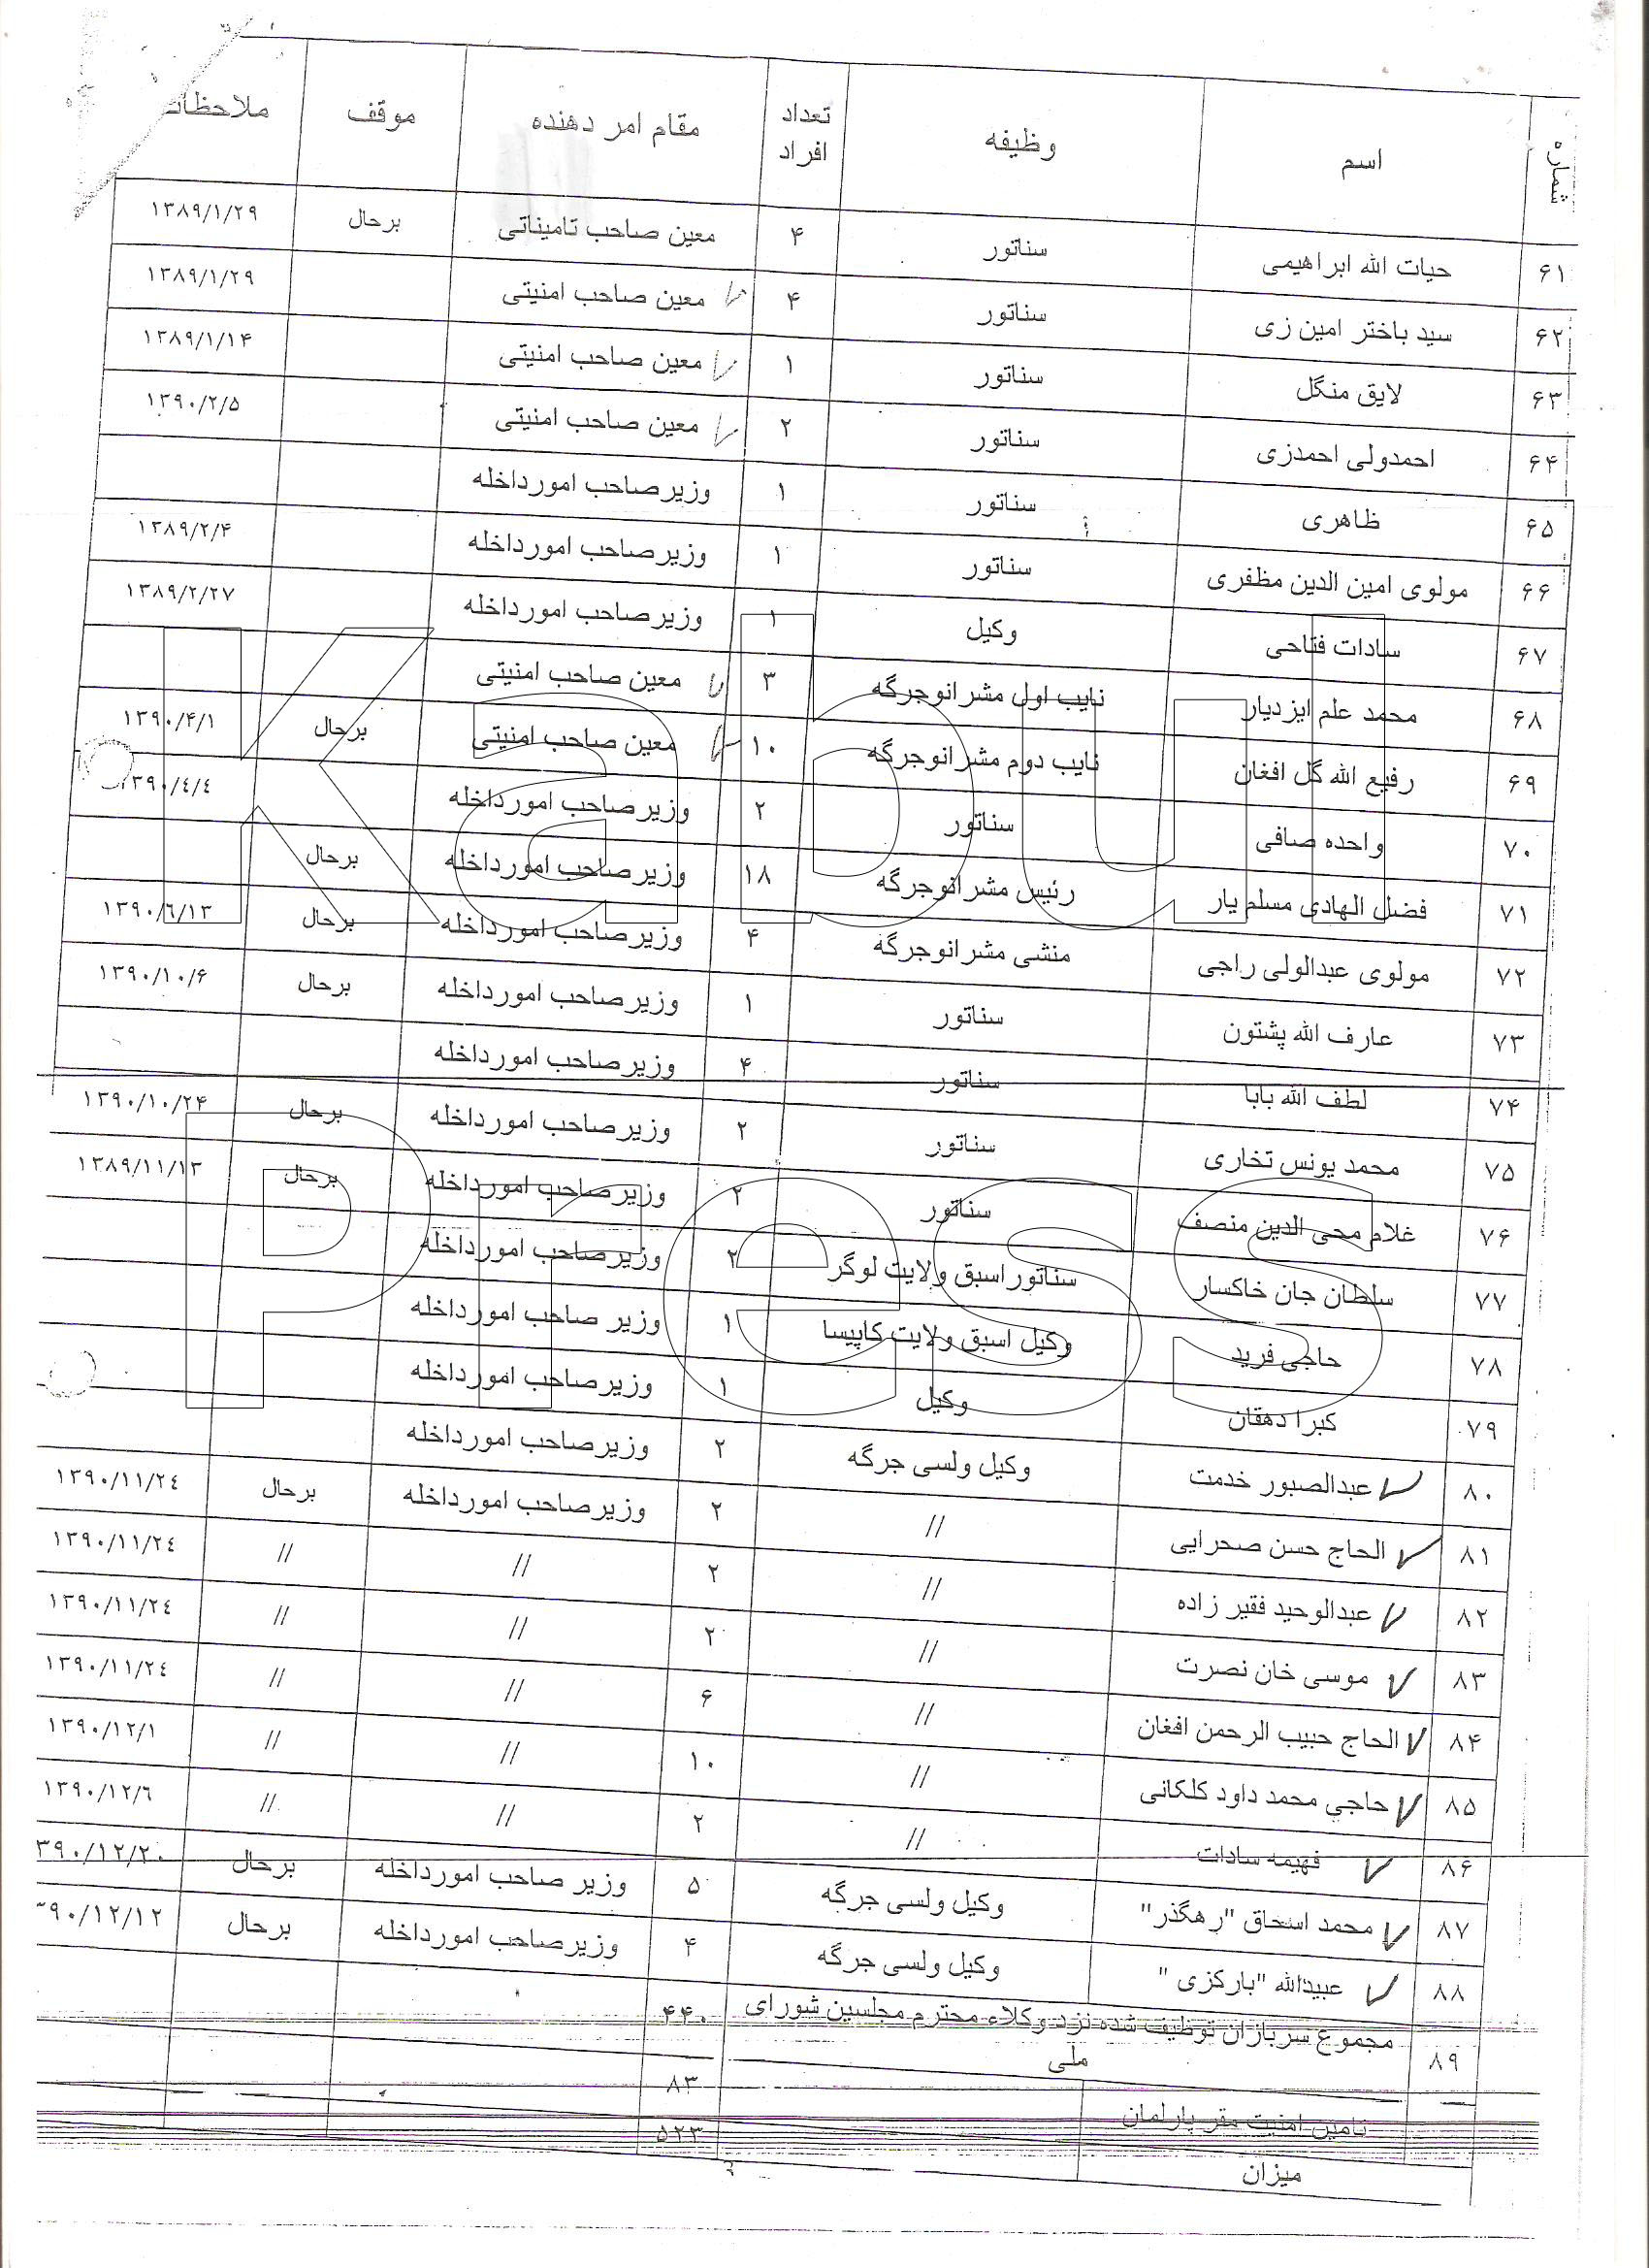 شماره اسم وظیفه تعداد افراد مقام امر دهنده موقف ملاحظات
۶۱ حیات الله ابراهیمی سناتور ۴ معین صاحب تامیناتی برحال ۱۳۸۹/۱/۲۹
۶۲ سید باختر امین زی سناتور ۴ معین صاحب امنیتی ۱۳۸۹/۱/۲۹
۶۳ لایق منگل سناتور ۱ معین صاحب امنیتی ۱۳۸۹/۱/۱۴
۶۴ احمدولی احمدزی سناتور ۲ معین صاحب امنیتی ۱۳۹۰/۲/۵
۶۵ ظاهری سناتور ۱ وزیرصاحب امورداخله
۶۶ مولوی امین الدین مظفری سناتور ۱ وزیرصاحب امورداخله ۱۳۸۹/۲/۴
۶۷ سادات فتاحی وکیل ۱ وزیرصاحب امورداخله ۱۳۸۹/۲/۲۷
۶۸ محمد علم ایزدیار نایب اول مشرانوجرگه ۳ معین صاحب امنیتی
۶۹ رفیع الله گل افغان نایب دوم مشرانوجرگه ۱۰ معین صاحب امنیتی برحال ۱۳۹۰/۴/۱
۷۰ واحده صافی سناتور ۲ وزیرصاحب امورداخله ۱۳۹۰/٤/٤
۷۱ فضل الهادی مسلم یار رئیس مشرانوجرگه ۱۸ وزیرصاحب امورداخله برحال
۷۲ مولوی عبدالولی راجی منشی مشرانوجرگه ۴ وزیرصاحب امورداخله برحال ۱۳۹۰/٦/۱۳
۷۳ عارف الله پشتون سناتور ۱ وزیرصاحب امورداخله برحال ۱۳۹۰/۱۰/۶
۷۴ لطف الله بابا سناتور ۴ وزیرصاحب امورداخله
۷۵ محمد یونس تخاری سناتور ۲ وزیرصاحب امورداخله برحال ۱۳۹۰/۱۰/۲۴
۷۶ غلام محی الدین منصف سناتور ۲ وزیرصاحب امورداخله برحال ۱۳۸۹/۱۱/۱۳
۷۷ سلطان جان خاکسار سناتوراسبق ولایت لوگر ۲ وزیرصاحب امورداخله
۷۸ حاجی فرید وکیل اسبق ولایت کاپیسا ۱ وزیر صاحب امورداخله
۷۹ کبرا دهقان وکیل ۱ وزیرصاحب امورداخله
۸۰ عبدالصبور خدمت وکیل ولسی جرگه ۲ وزیرصاحب امورداخله
۸۱ الحاج حسن صحرایی // ۲ وزیرصاحب امورداخله برحال ۱۳۹۰/۱۱/۲٤
۸۲ عبدالوحید فقیر زاده // ۲ // // ۱۳۹۰/۱۱/۲٤
۸۳ موسی خان نصرت // ۲ // // ۱۳۹۰/۱۱/۲٤
۸۴ الحاج حبیب الرحمن افغان // ۶ // // ۱۳۹۰/۱۱/۲٤
۸۵ حاجی محمد داود کلکانی // ۱۰ // // ۱۳۹۰/۱۲/۱
۸۶ فهیمه سادات // ۲ // // ۱۳۹۰/۱۲/٦
۸۷ محمد اسحاق "رهگذر" وکیل ولسی جرگه ۵ وزیر صاحب امورداخله برحال ۳۹۰/۱۲/۲۰
۸۸ عبیدالله "بارکزی" وکیل ولسی جرگه ۴ وزیرصاحب امورداخله برحال ۳۹۰/۱۲/۱۲
۸۹ مجموع سربازان توظیف شده نزد وکلاء محترم مجلسین شورای ملی ۴۴۰
تامین امنیت مقر پارلمان ۸۳
میزان ۵۲۳
Kabul
Press